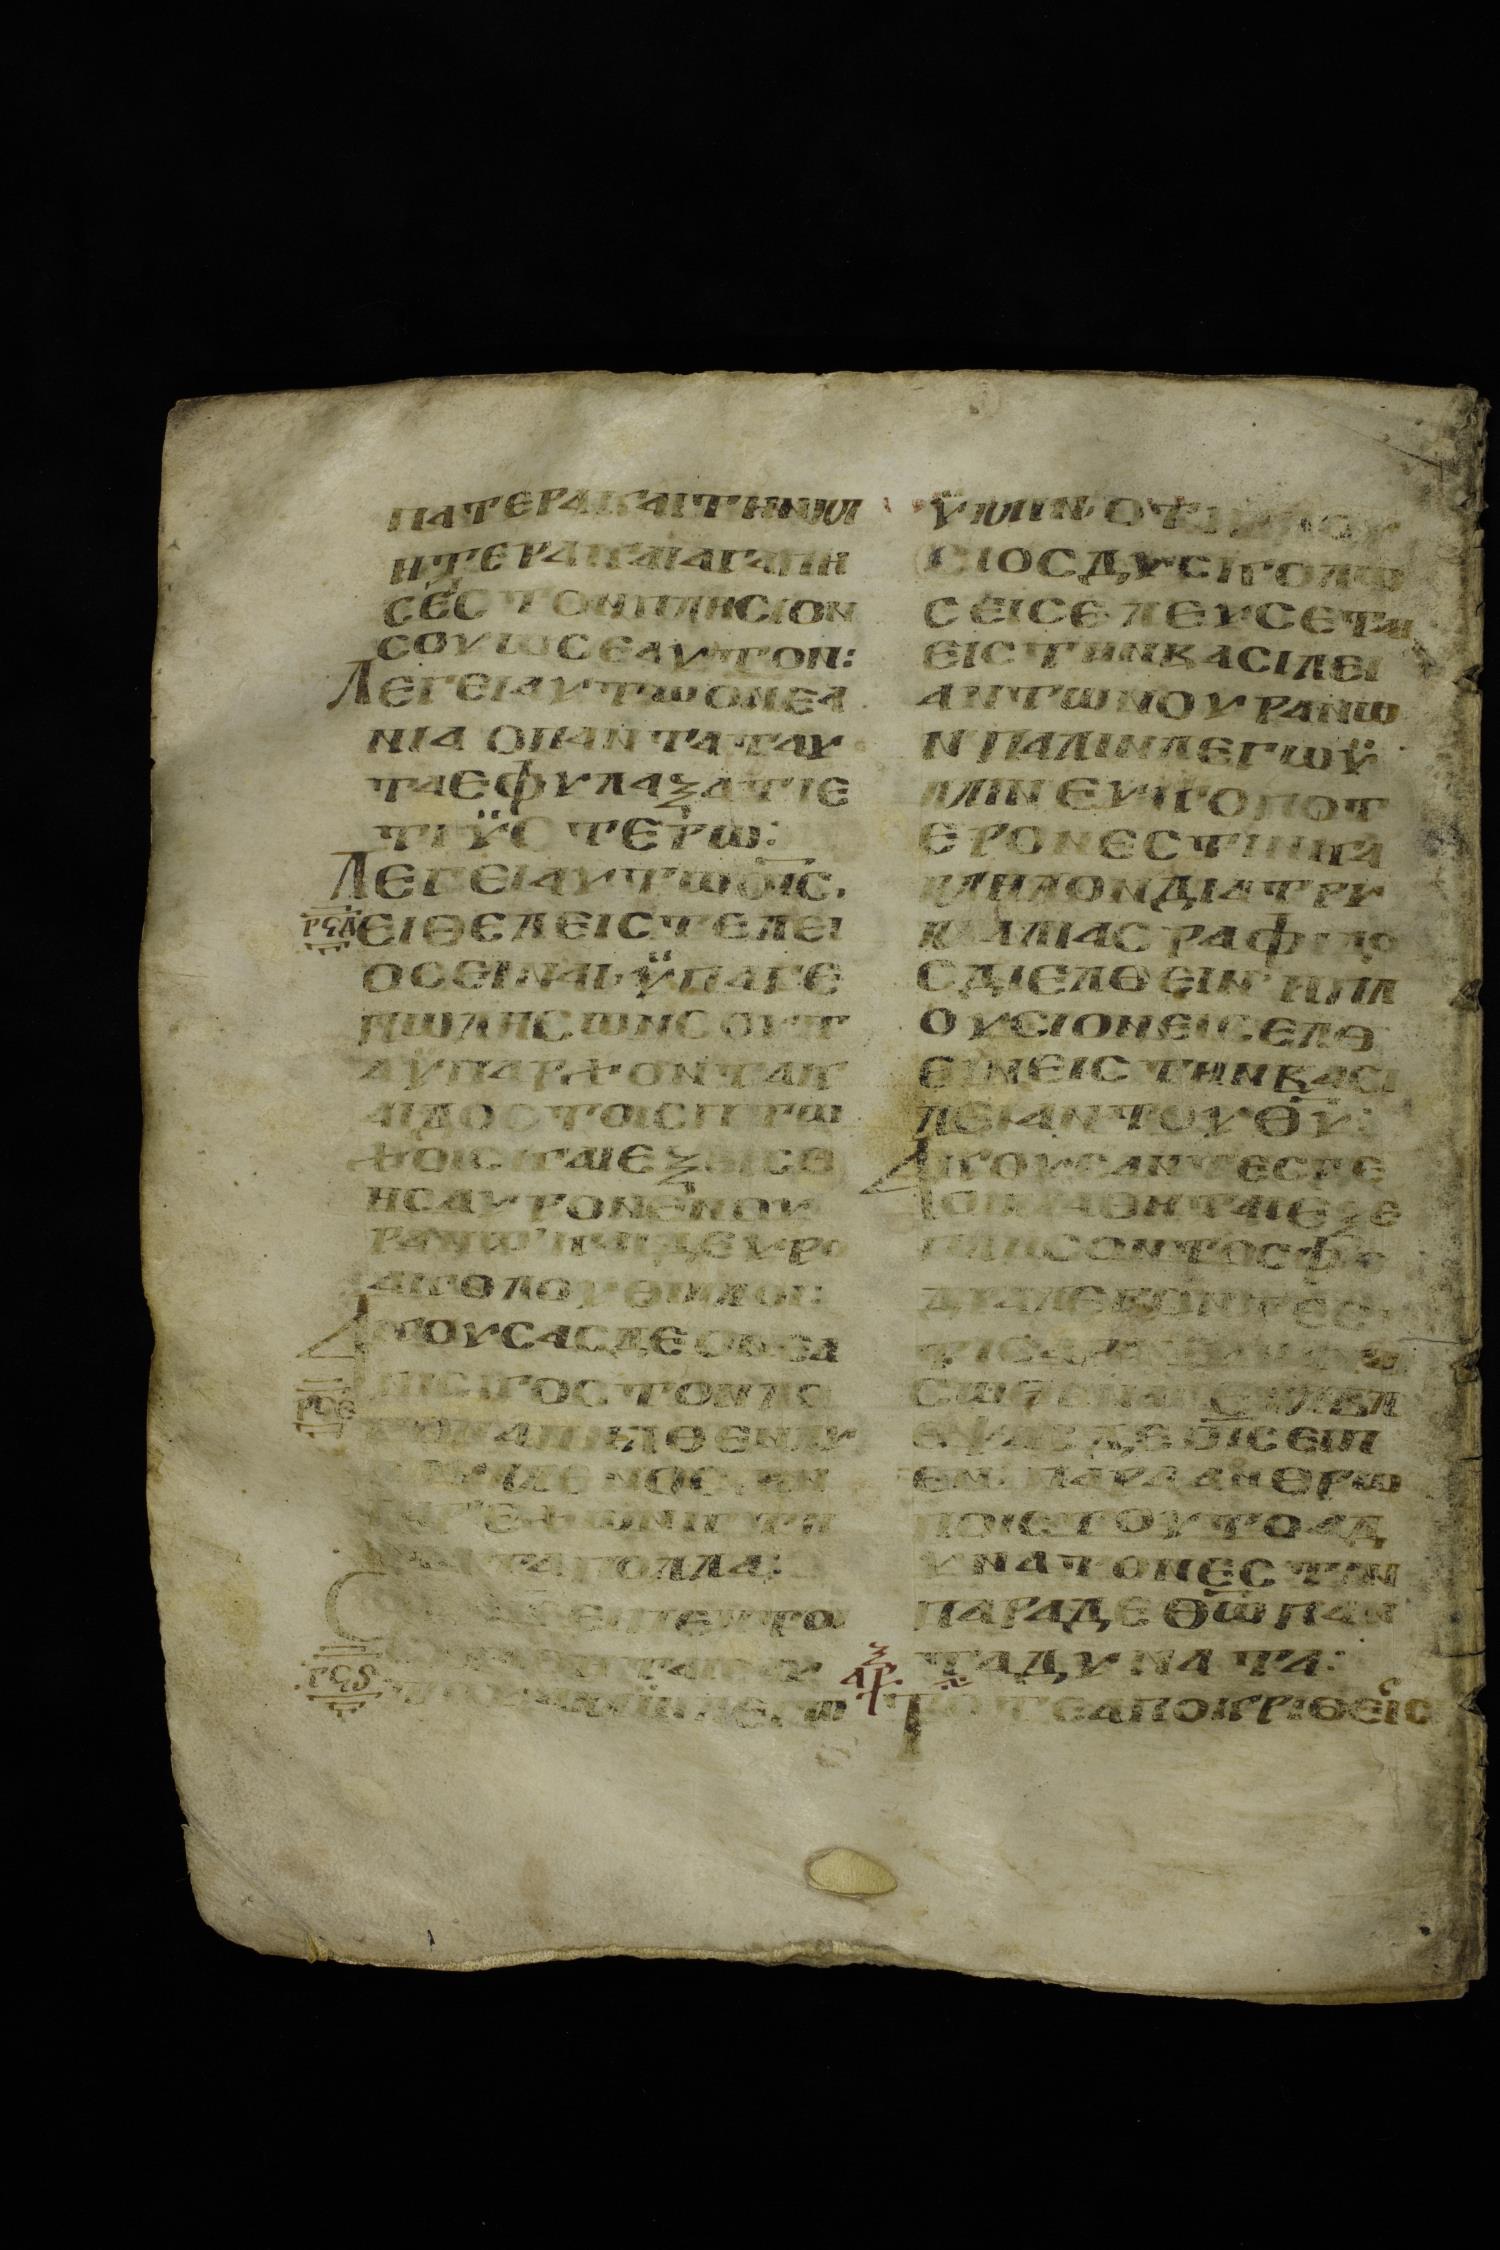 ΠΑΤΕΡΑΚΑΙΤΗΝΜ
ΗΤΕΡΑΚΑΙΑΓΑΠΗ
ΣΕΣΤΟΝΠΛΗΣΙΟΝ
ΣΟΥΩΣΕΑΥΤΟΝ:
ΛΕΓΕΙΑΥΤΩΟΝΕΑ
ΝΙΑΟΠΑΝΤΑΤΑΥ
ΤΑΕΦΥΛΑΞΑΤΙΕ
ΤΙΫΣΤΕΡΩ:
ΛΕΓΕΙΑΥΤΩΟΙ̅Σ̅.
ΡϞΔ ΕΙΘΕΛΕΙΣΤΕΛΕΙ
ΟΣΕΙΝΑΙ·ΫΠΑΓΕ
ΠΩΛΗΣΩΝΣΟΥΤ
ΑΫΠΑΡΧΟΝΤΑΚ
ΑΙΔΟΣΤΟΙΣΠΤΩ
ΧΟΙΣΚΑΙΕΞΕΙΣΘ
ΗΣΑΥΡΟΝΕΝΟΥ
ΡΑΝΩ·ΚΑΙΔΕΥΡΟ
ΑΚΟΛΟΥΘΙΜΟΙ:
ΑΚΟΥΣΑΣΔΕΟΝΕΑ
ΡϞΕ ΝΙΣΚΟΣΤΟΝΛΟ
ΓΟΝΑΠΗΛΘΕΝΛΥ
ΗΝ
ΓΑΡΕΧΩΝΚΤΗ
ΤΑΠΟΛΛΑ:
ΕΙΠΕΝΤΟΙ
ΑΥ
ΡϞϚ ΛΕΓΩ
ΫΜΙΝ·ΟΤΙΠΛΟΥ
ΣΙΟΣΔΥΣΚΟΛΩ
ΣΕΙΣΕΛΕΥΣΕΤΑΙ
ΕΙΣΤΗΝΒΑΣΙΛΕΙ
ΑΝΤΩΝΟΥΡΑΝΩ
ΝΠΑΛΙΝΛΕΓΩΫ
ΜΙΝΕΥΚΟΠΟΤ
ΕΡΟΝΕΣΤΙΝΚΑ
ΜΗΛΟΝΔΙΑΤΡΥ
ΜΑΛΙΑΣΡΑΦΙΔΟ
ΣΔΙΕΛΘΕΙΝ·ΗΠΛ
ΟΥΣΙΟΝΕΙΣΕΛΘ
ΕΙΝΕΙΣΤΗΝΒΑΣΙ
ΛΕΙΑΝΤΟΥΘ̅Υ̅:
ΑΚΟΥΣΑΝΤΕΣΔΕ
ΟΙΜΑΘΗΤΑΙΕΞΕ
ΠΛΗΣΟΝΤΟΣΦΟ
ΔΡΑΛΕΓΟΝΤΕΣ·
ΕΜΒΛ
ΕΨΑΣΔΕΟΙ̅Σ̅ΕΙΠ
ΕΝ·ΠΑΡΑΑΝΘΡΩ
ΠΟΙΣΤΟΥΤΟΑΔ
ΥΝΑΤΟΝΕΣΤΙΝ
ΠΑΡΑΔΕΘ̅Ω̅ΠΑΝ
ΤΑΔΥΝΑΤΑ:
ΑΡ ΤΟΤΕΑΠΟΚΡΙΘΕΙΣ